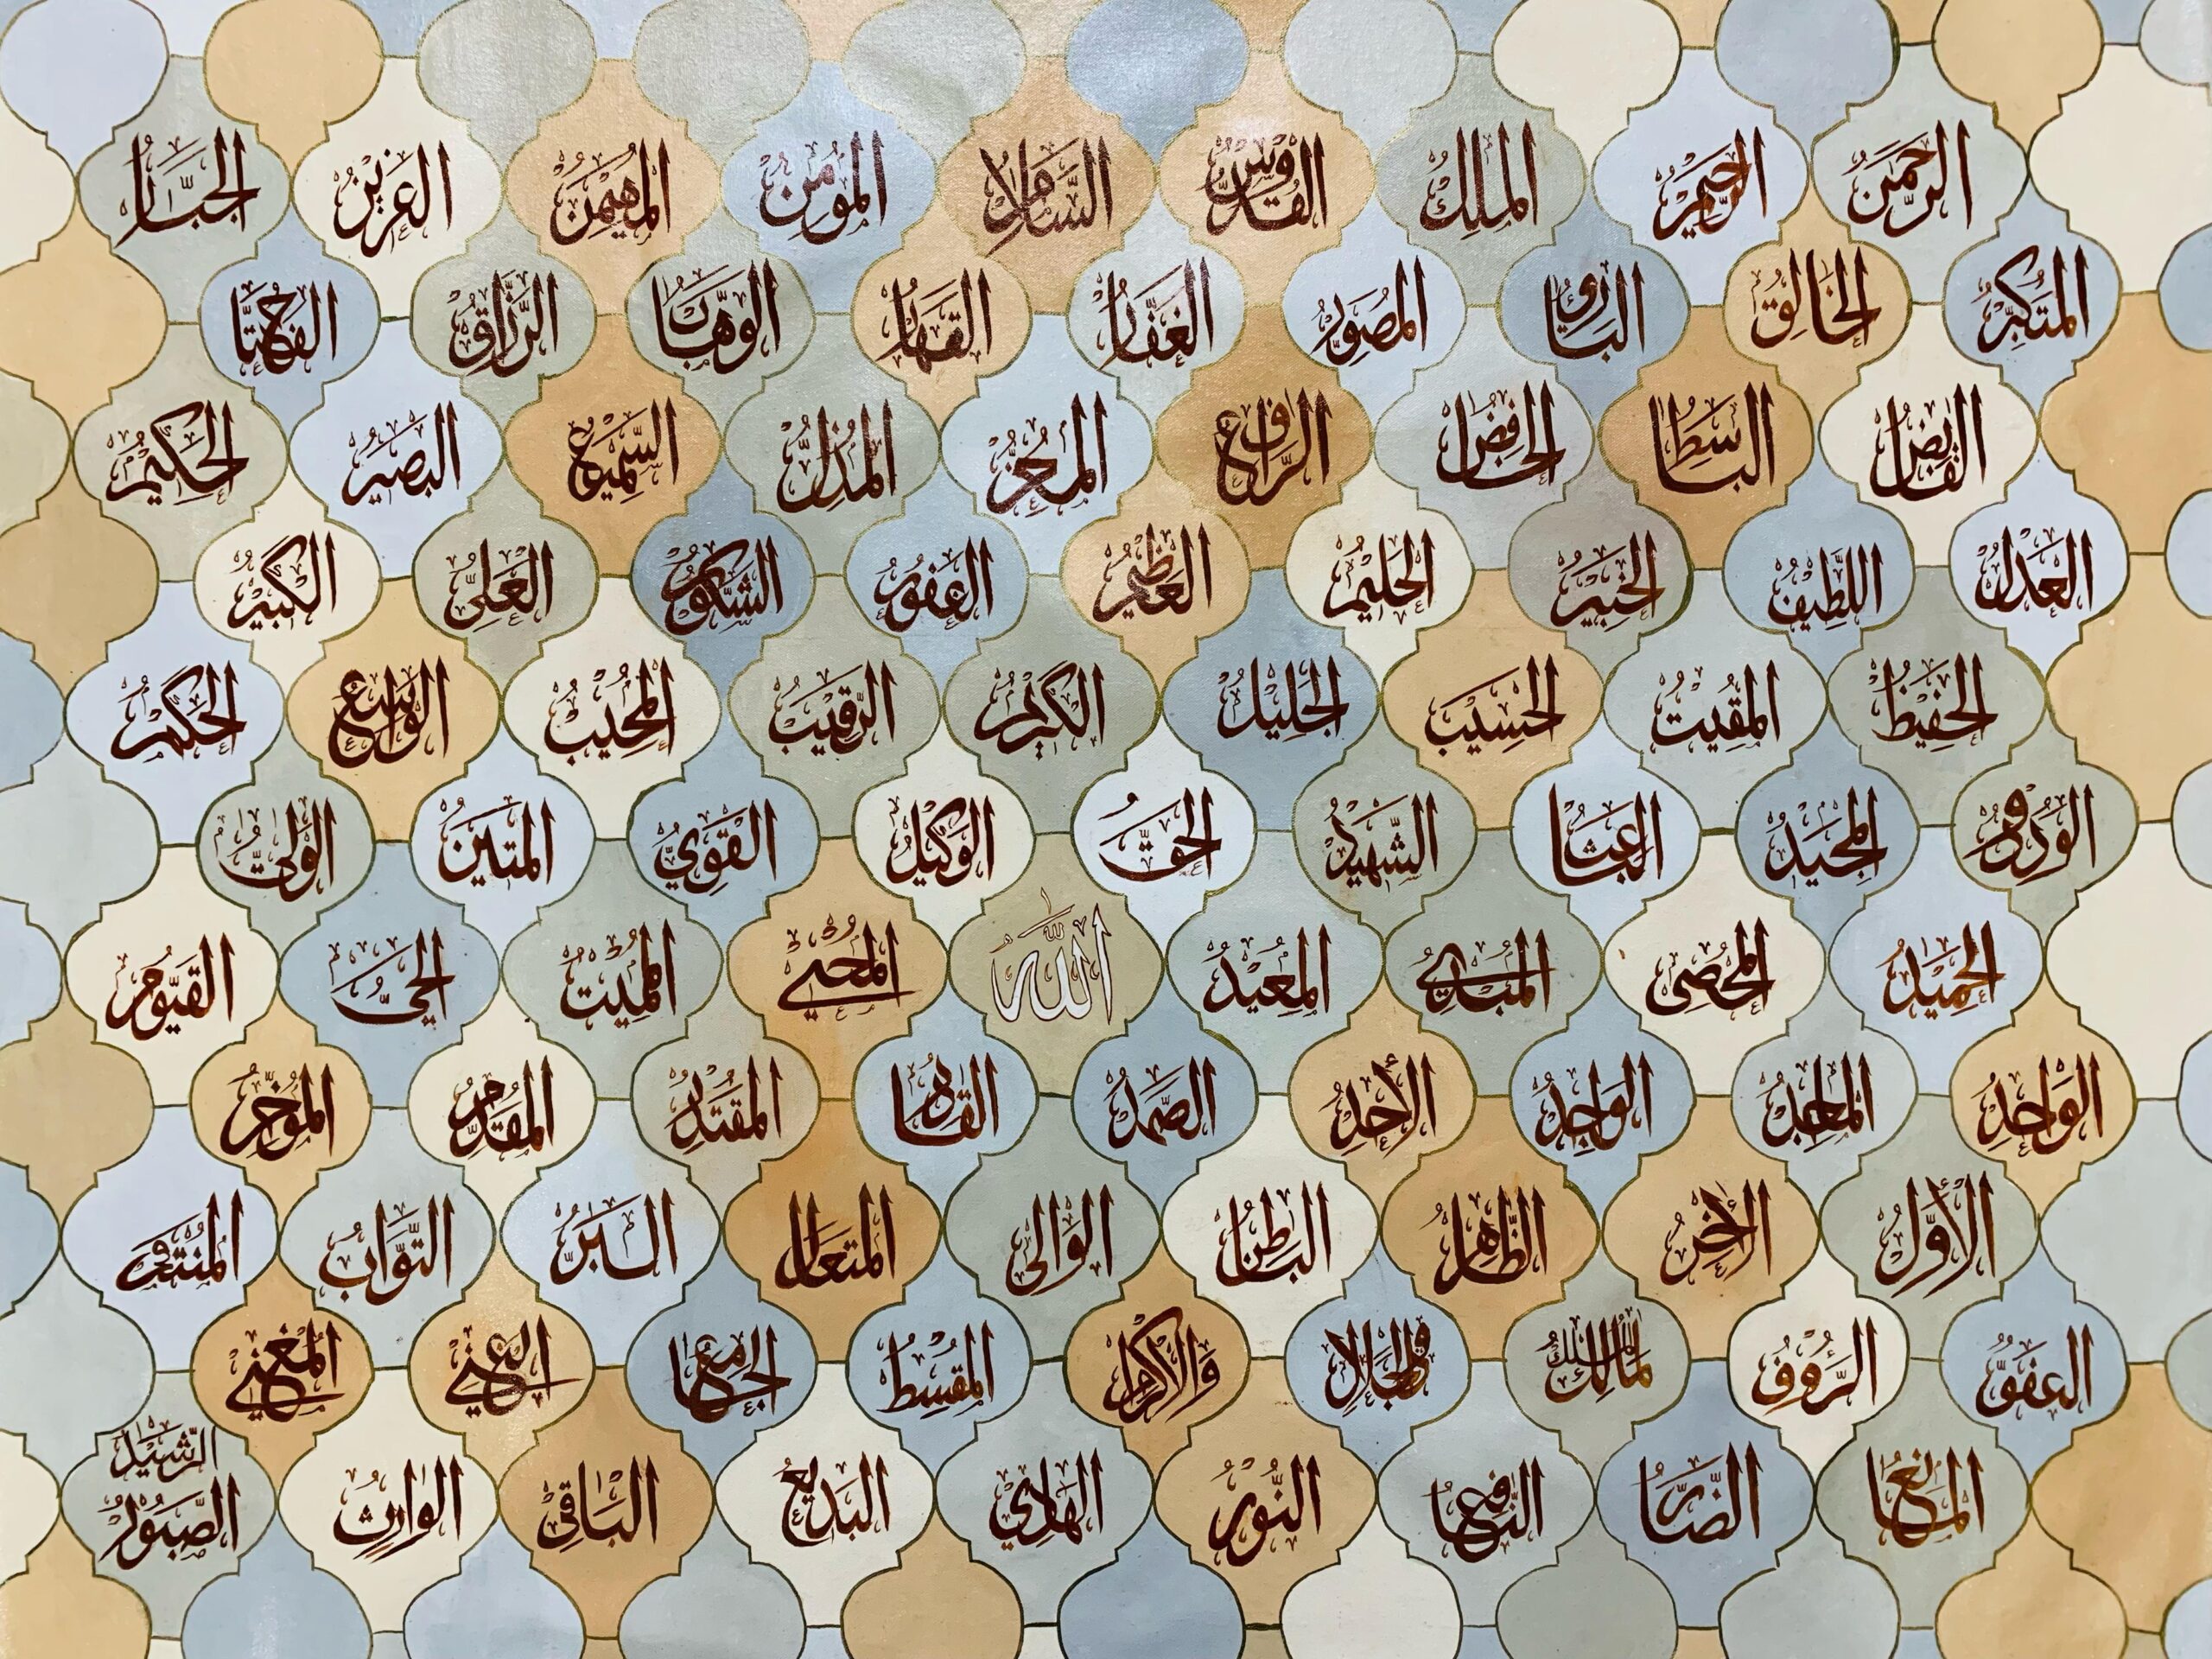 الرحمن الرحيم الملك القدوس السلام المؤمن المهيمن العزيز الجبار
المتكبر الخالق البارئ المصور الغفار القهار الوهاب الرزاق الفتاح
القابض الباسط الخافض الرافع المعز المذل السميع البصير الحكيم
العدل اللطيف الخبير الحليم العظيم الغفور الشكور العلي الكبير
الحفيظ المقيت الحسيب الجليل الكريم الرقيب المجيب الواسع الحكم
الودود المجيد الباعث الشهيد الحق الوكيل القوي المتين الولي
الحميد المحصي المبدئ المعيد الله المحيي المميت الحي القيوم
الواحد الماجد الواجد الأحد الصمد القادر المقتدر المقدم المؤخر
الأول الآخر الظاهر الباطن الوالي المتعال البر التواب المنتقم
العفو الرؤوف مالك الملك ذو الجلال والإكرام المقسط الجامع الغني المغني
المانع الضار النافع النور الهادي البديع الباقي الوارث الرشيد الصبور